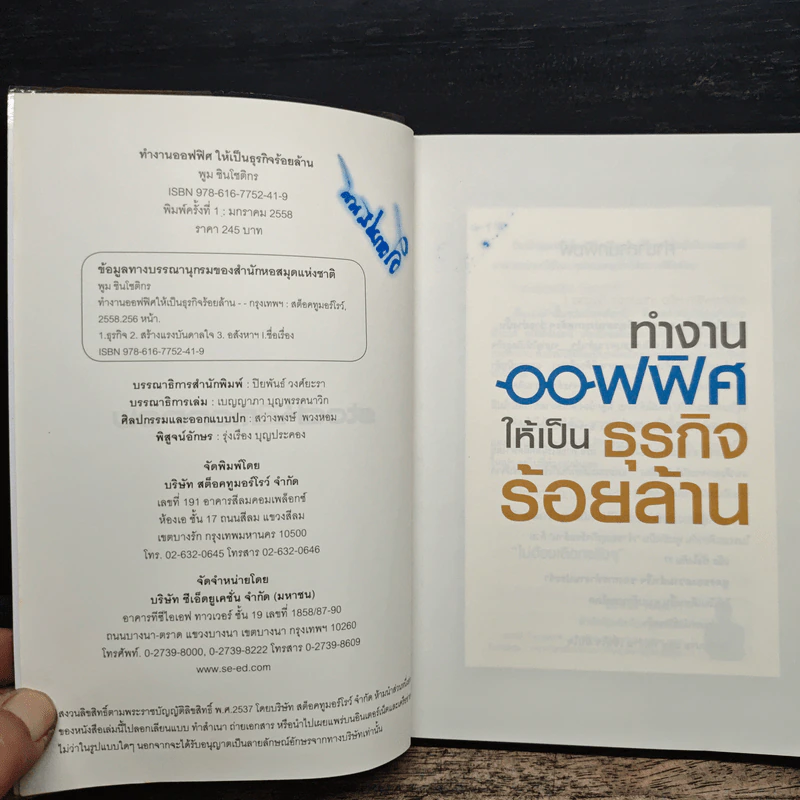 ทำงานออฟฟิศ ให้เป็นธุรกิจร้อยล้าน
พูม ชินโชติกร
ISBN 978-616-7752-41-9
พิมพ์ครั้งที่ 1 : มกราคม 2558
ราคา 245 บาท
ข้อมูลทางบรรณานุกรมของสำนักหอสมุดแห่งชาติ
พูม ชินโชติกร
ทำงานออฟฟิศให้เป็นธุรกิจร้อยล้าน - - กรุงเทพฯ : สต็อคทูมอร์โรว์,
2558.256 หน้า.
1.ธุรกิจ 2. สร้างแรงบันดาลใจ 3. อสังหาฯ I.ชื่อเรื่อง
ISBN 978-616-7752-41-9
บรรณาธิการสำนักพิมพ์ : ปิยพันธ์ วงศ์ยะรา
บรรณาธิการเล่ม : เบญญาภา บุญพรรคนาวิก
ศิลปกรรมและออกแบบปก : สว่างพงษ์ พวงหอม
พิสูจน์อักษร : รุ่งเรือง บุญประคอง
จัดพิมพ์โดย
บริษัท สต็อคทูมอร์โรว์ จำกัด
เลขที่ 191 อาคารสีลมคอมเพล็กซ์
ห้องเอ ชั้น 17 ถนนสีลม แขวงสีลม
เขตบางรัก กรุงเทพมหานคร 10500
โทร. 02-632-0645 โทรสาร 02-632-0646
จัดจำหน่ายโดย
บริษัท ซีเอ็ดยูเคชั่น จำกัด (มหาชน)
อาคารทีซีไอเอฟ ทาวเวอร์ ชั้น 19 เลขที่ 1858/87-90
ถนนบางนา-ตราด แขวงบางนา เขตบางนา กรุงเทพฯ 10260
โทรศัพท์. 0-2739-8000, 0-2739-8222 โทรสาร 0-2739-8609
www.se-ed.com
สงวนลิขสิทธิ์ตามพระราชบัญญัติลิขสิทธิ์ พ.ศ.2537 โดยบริษัท สต็อคทูมอร์โรว์ จำกัด ห้ามนำส่วนหนึ่ง
ของหนังสือเล่มนี้ไปลอกเลียนแบบ ทำสำเนา ถ่ายเอกสาร หรือนำไปเผยแพร่บนอินเตอร์เน็ตและเครือข่าย
ไม่ว่าในรูปแบบใดๆ นอกจากจะได้รับอนุญาตเป็นลายลักษณ์อักษรจากทางบริษัทเท่านั้น
ทำงาน
ออฟฟิศ
ให้เป็น ธุรกิจ
ร้อยล้าน